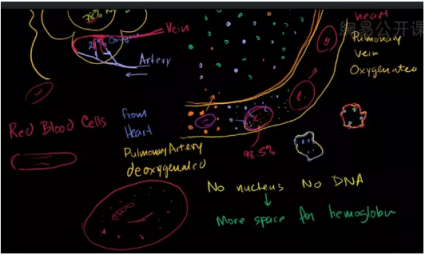 Vein
Artery
heart
Pulmonary
vein
Oxygenated
网易公开课
Red Blood Cells
from
Heart
Pulmonary Artery
deoxygenated
98.5%
No nucleus No DNA
More space for hemoglobin